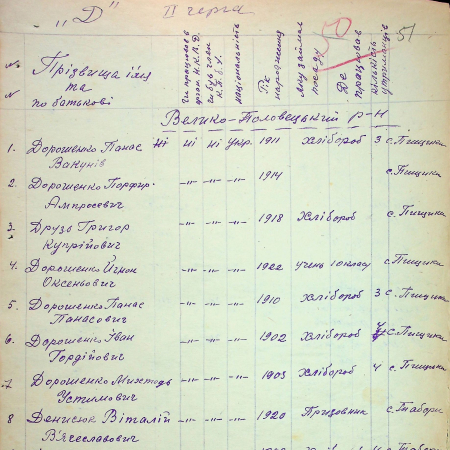 „Д" II черга
50 51
№ № Прізвища імя та по батькові Чи працював в орган. Н.К.В.Д. Чи був член К.П.б.У. національність Рік народження Яку займав посаду Де працював кількість утриманців
Велико-Половецький р-н
1. Дорошенко Панас Вакунів ні ні ні укр. 1911 Хлібороб 3 с. Пищики
2. Дорошенко Порфир. Ампросевич -"- -"- -"- 1914 с. Пищики
3. Друзь Григор Купрійович -"- -"- -"- 1918 Хлібороб с. Пищики
4. Дорошенко Оксеньович -"- -"- -"- 1922 учень 10 класу с. Пищики
5. Дорошенко Панас Панасович -"- -"- -"- 1910 Хлібороб 3 с. Пищики
6. Дорошенко Іван Гордійович -"- -"- -"- 1902 Хлібороб с. Пищики
7. Дорошенко Устимович -"- -"- -"- 1903 Хлібороб 4 с. Пищики
8 Денисюк Віталій В'ячеславович -"- -"- -"- 1920 Призовник с. Табори